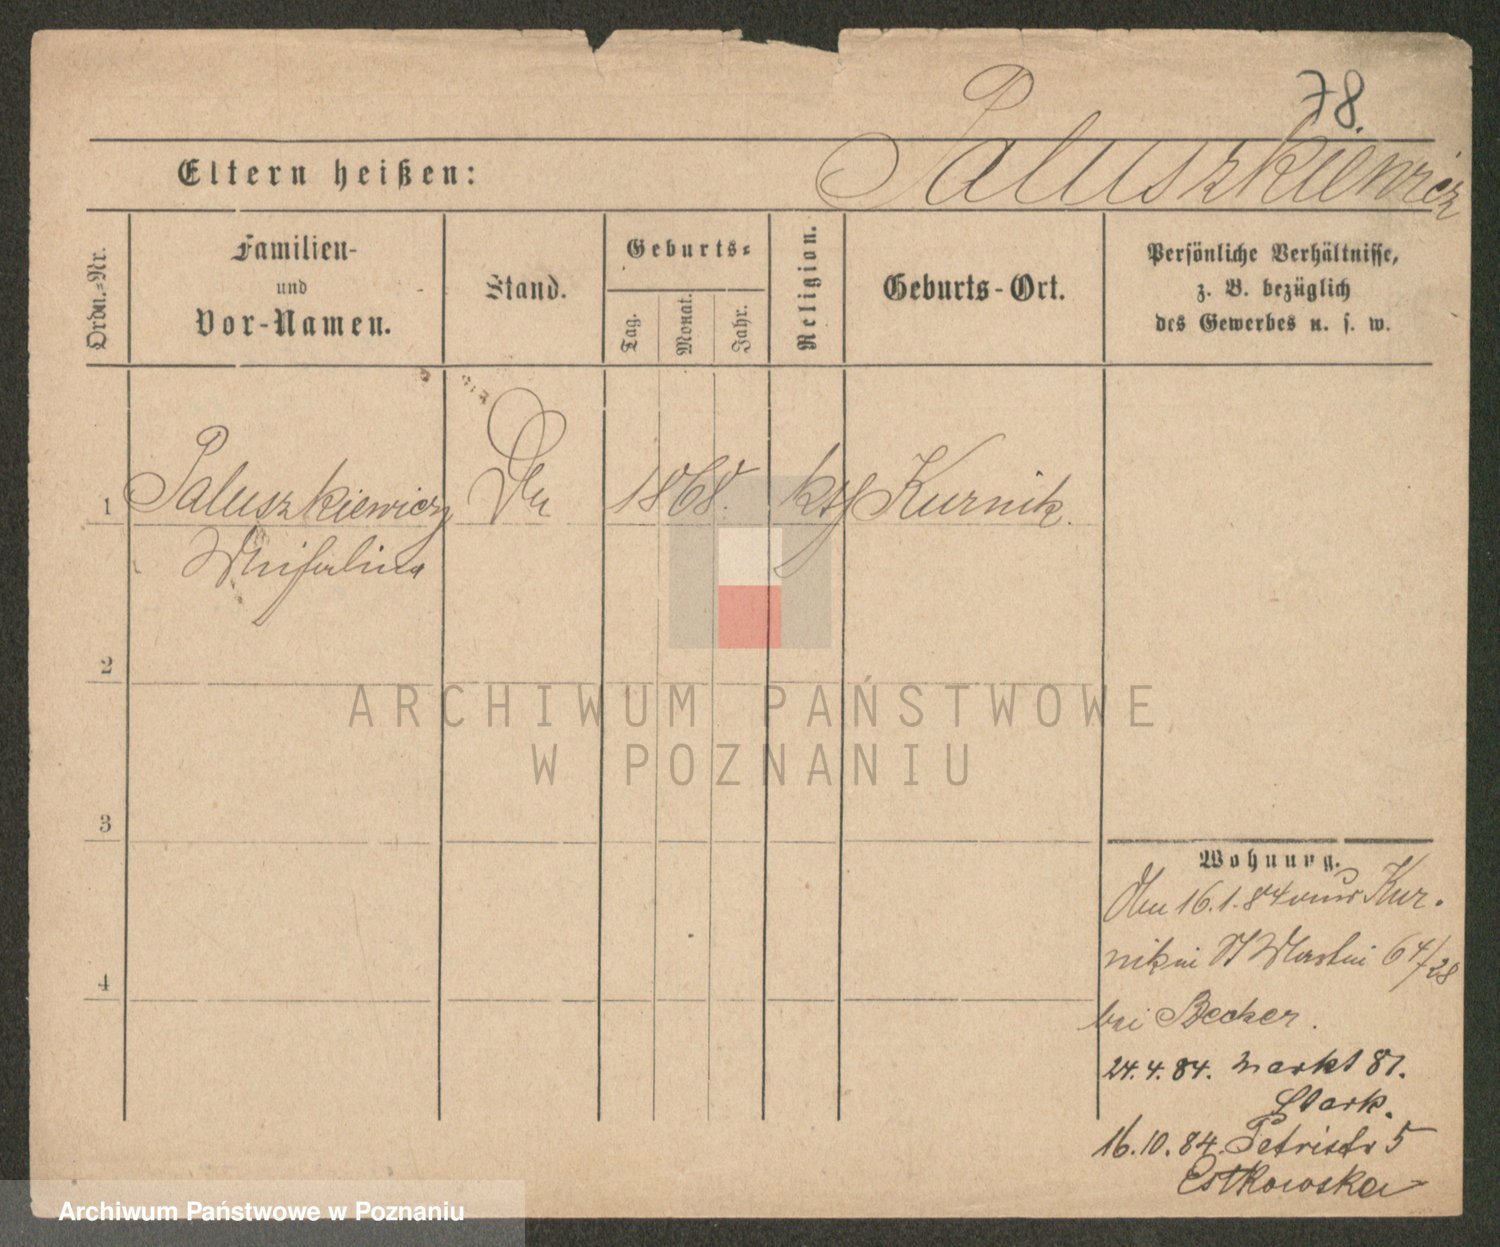 78.
Eltern heißen:
Paluszkiewicz
Ordn.=Nr.
Familien-
und
Vor-Namen.
Stand.
Geburts=
Tag.
Monat.
Jahr.
Religion.
Geburts-Ort.
Persönliche Verhältnisse,
z. B. bezüglich
des Gewerbes u. s. w.
1
Paluszkiewicz
1868.
Kurnik.
2
3
4
Wohnung.
16.1.84 Kur-
nik St Martin 64/28
bei Becker.
24.4.84. Markt 81.
Stark.
16.10.84. Petristr 5
Estkowska
ARCHIWUM PAŃSTWOWE
W POZNANIU
Archiwum Państwowe w Poznaniu